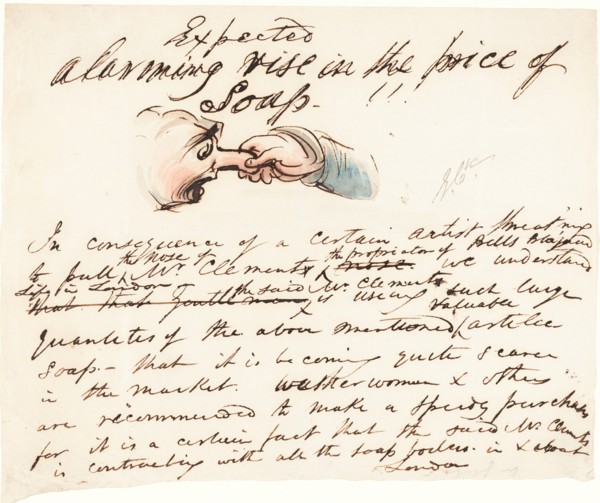 Expected
alarming rise in the price of
Soap - !!
In consequence of a certain artist threat'nig
the nose of the propriator of Bells
to pull Mr. Clements nose we understand
Life in London
that that gentleman the said Mr. Clements is useing such large
valuable
quantities of the above mentioned article
Soap - that it is becoming quite scarce
in the market. washerwomen & others
are recommended to make a speedy purchase
for it is a certain fact that the said Mr. Clements
is contracting with all the soap boilers in & about
London